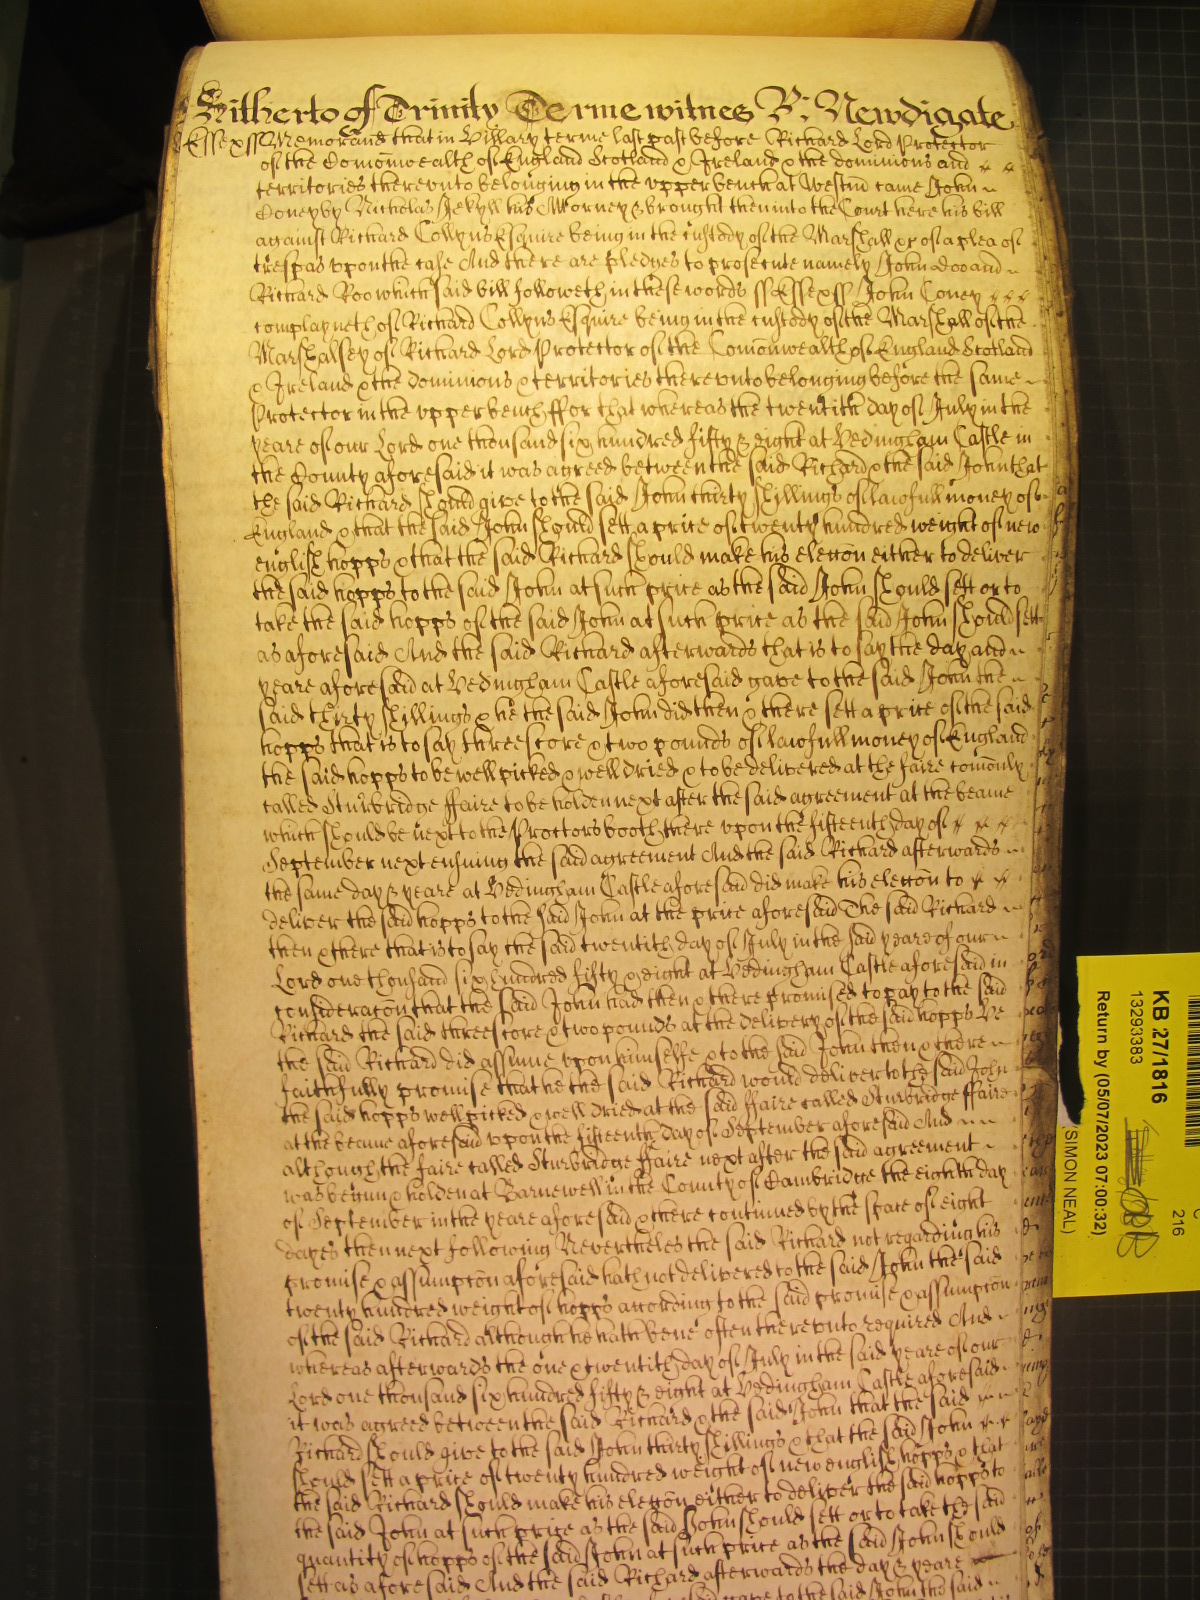 Hitherto of Trinity Terme witnes R: Newdigate
Essex ss Memorand that in Hillary terme last past before Richard Lord Protector
of the Comonwealth of England Scotland & Ireland & the dominions and
territories thereunto belonging in the upper bench at Westm came John
Coney by Nicholas Jekyll his Attorney & brought then into the Court here his bill
against Richard Collyns Esquire being in the custody of the Marshall &c of a plea of
trespas upon the case And there are pledges to prosecute namely John Doo and
Richard Roo which said bill followeth in these words ss Essex ss John Coney
complayneth of Richard Collyns Esquire being in the custody of the Marshall of the
Marshalsey of Richard Lord Protector of the Comonwealth of England Scotland
& Ireland & the dominions & territories thereunto belonging before the same
Protector in the upper bench ffor that whereas the twentith day of July in the
yeare of our Lord one thousand six hundred fifty & eight at Hedingham Castle in
the County aforesaid it was agreed betweene the said Richard & the said John that
the said Richard should give to the said John thirty shillings of lawfull money of
England & that the said John should sett a price of twenty hundred weight of new
english hopps & that the said Richard should make his eleccon either to deliver
the said hopps to the said John at such price as the said John should sett or to
take the said hopps of the said John at such price as the said John should sett
as aforesaid And the said Richard afterwards that is to say the day and
yeare aforesaid at Hedingham Castle aforesaid gave to the said John the
said thirty shillings & he the said John did then & there sett a price of the said
hopps that is to say threescore & two pounds of lawfull money of England
the said hopps to be well picked & well dried & to be delivered at the faire comonly
called Sturbridge ffaire to be holden next after the said agreement at the beame
which should be next to the Proctors booth there upon the fifteenth day of
September next ensuing the said agreement And the said Richard afterwards
the same day & yeare at Hedingham Castle aforesaid did make his eleccon to
deliver the said hopps to the said John at the price aforesaid The said Richard
then & there that is to say the said twentith day of July in the said yeare of our
Lord one thousand six hundred fifty & eight at Hedingham Castle aforesaid in
consideracon that the said John had then & there promised to pay to the said
Richard the said threescore & two pounds at the delivery of the said hopps He
the said Richard did assume upon himselfe & to the said John then & there
faithfully promise that he the said Richard would deliver to the said John
the said hopps well picked & well dried at the said ffaire called Sturbridge ffaire
at the beame aforesaid upon the fifteenth day of September aforesaid And
although the faire called Sturbridge ffaire next after the said agreement
was begun & holden at Barnewell in the County of Cambridge the eighth day
of September in the yeare aforesaid & there continued by the space of eight
dayes then next following Nevertheles the said Richard not regarding his
promise & assumpcon aforesaid hath not delivered to the said John the said
twenty hundred weight of hopps according to the said promise & assumpcon
of the said Richard although he hath bene often thereunto required And
whereas afterwards the one & twentith day of July in the said yeare of our
Lord one thousand six hundred fifty & eight at Hedingham Castle aforesaid
it was agreed betweene the said Richard & the said John that the said
Richard should give to the said John thirty shillings & that the said John
should sett a price of twenty hundred weight of new english hopps & that
the said Richard should make his eleccon either to deliver the said hopps to
the said John at such price as the said John should sett or to take the said
quantity of hopps of the said John at such price as the said John should
sett as aforesaid And the said Richard afterwards the day & yeare
gave to the said John the said
KB 27/1816
13293383
Return by (05/07/2023 07:00:32)
(SIMON NEAL)
216